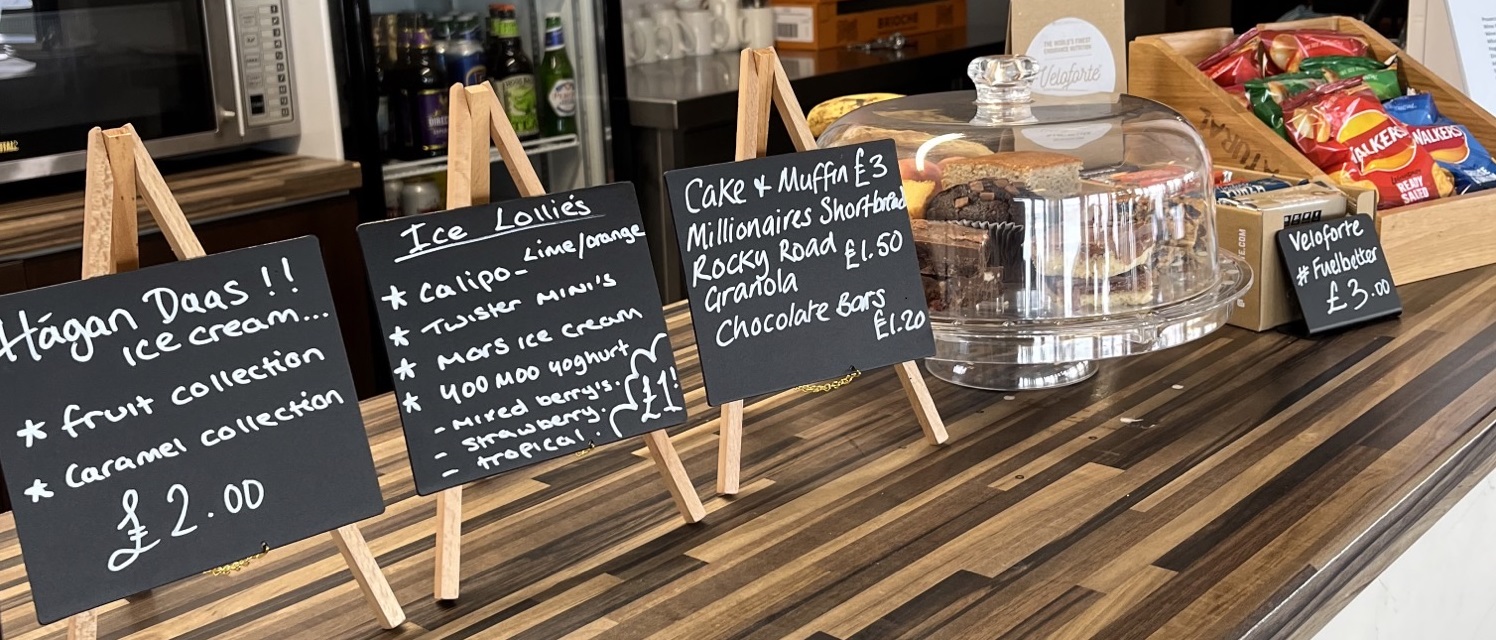 Hágan Daas !!
ice cream...
* fruit collection
* Caramel collection
£2.00
Ice Lollie's
* Calipo - Lime/orange
* Twister MINI'S
* Mars ice cream
* Yoo Moo Yoghurt
- Mixed berry's.
- Strawberry.
- tropical.
£1!
Cake & Muffin £3
Millionaires Shortbread
Rocky Road £1.50
Granola
Chocolate Bars
£1.20
Veloforte
# Fuelbetter
£3.00
Veloforte
BRIOCHE
WALKERS
READY
SALTED
WALKERS